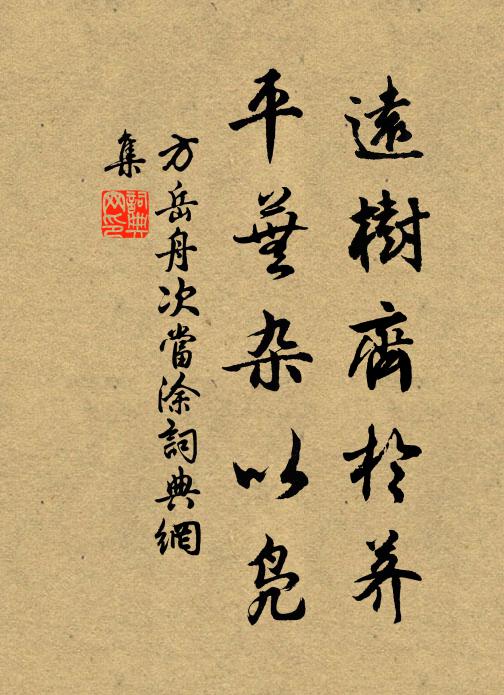 遠樹齊於荠
平蕪杂以凫
方岳舟次當涂詞典網
集
詞典
网印